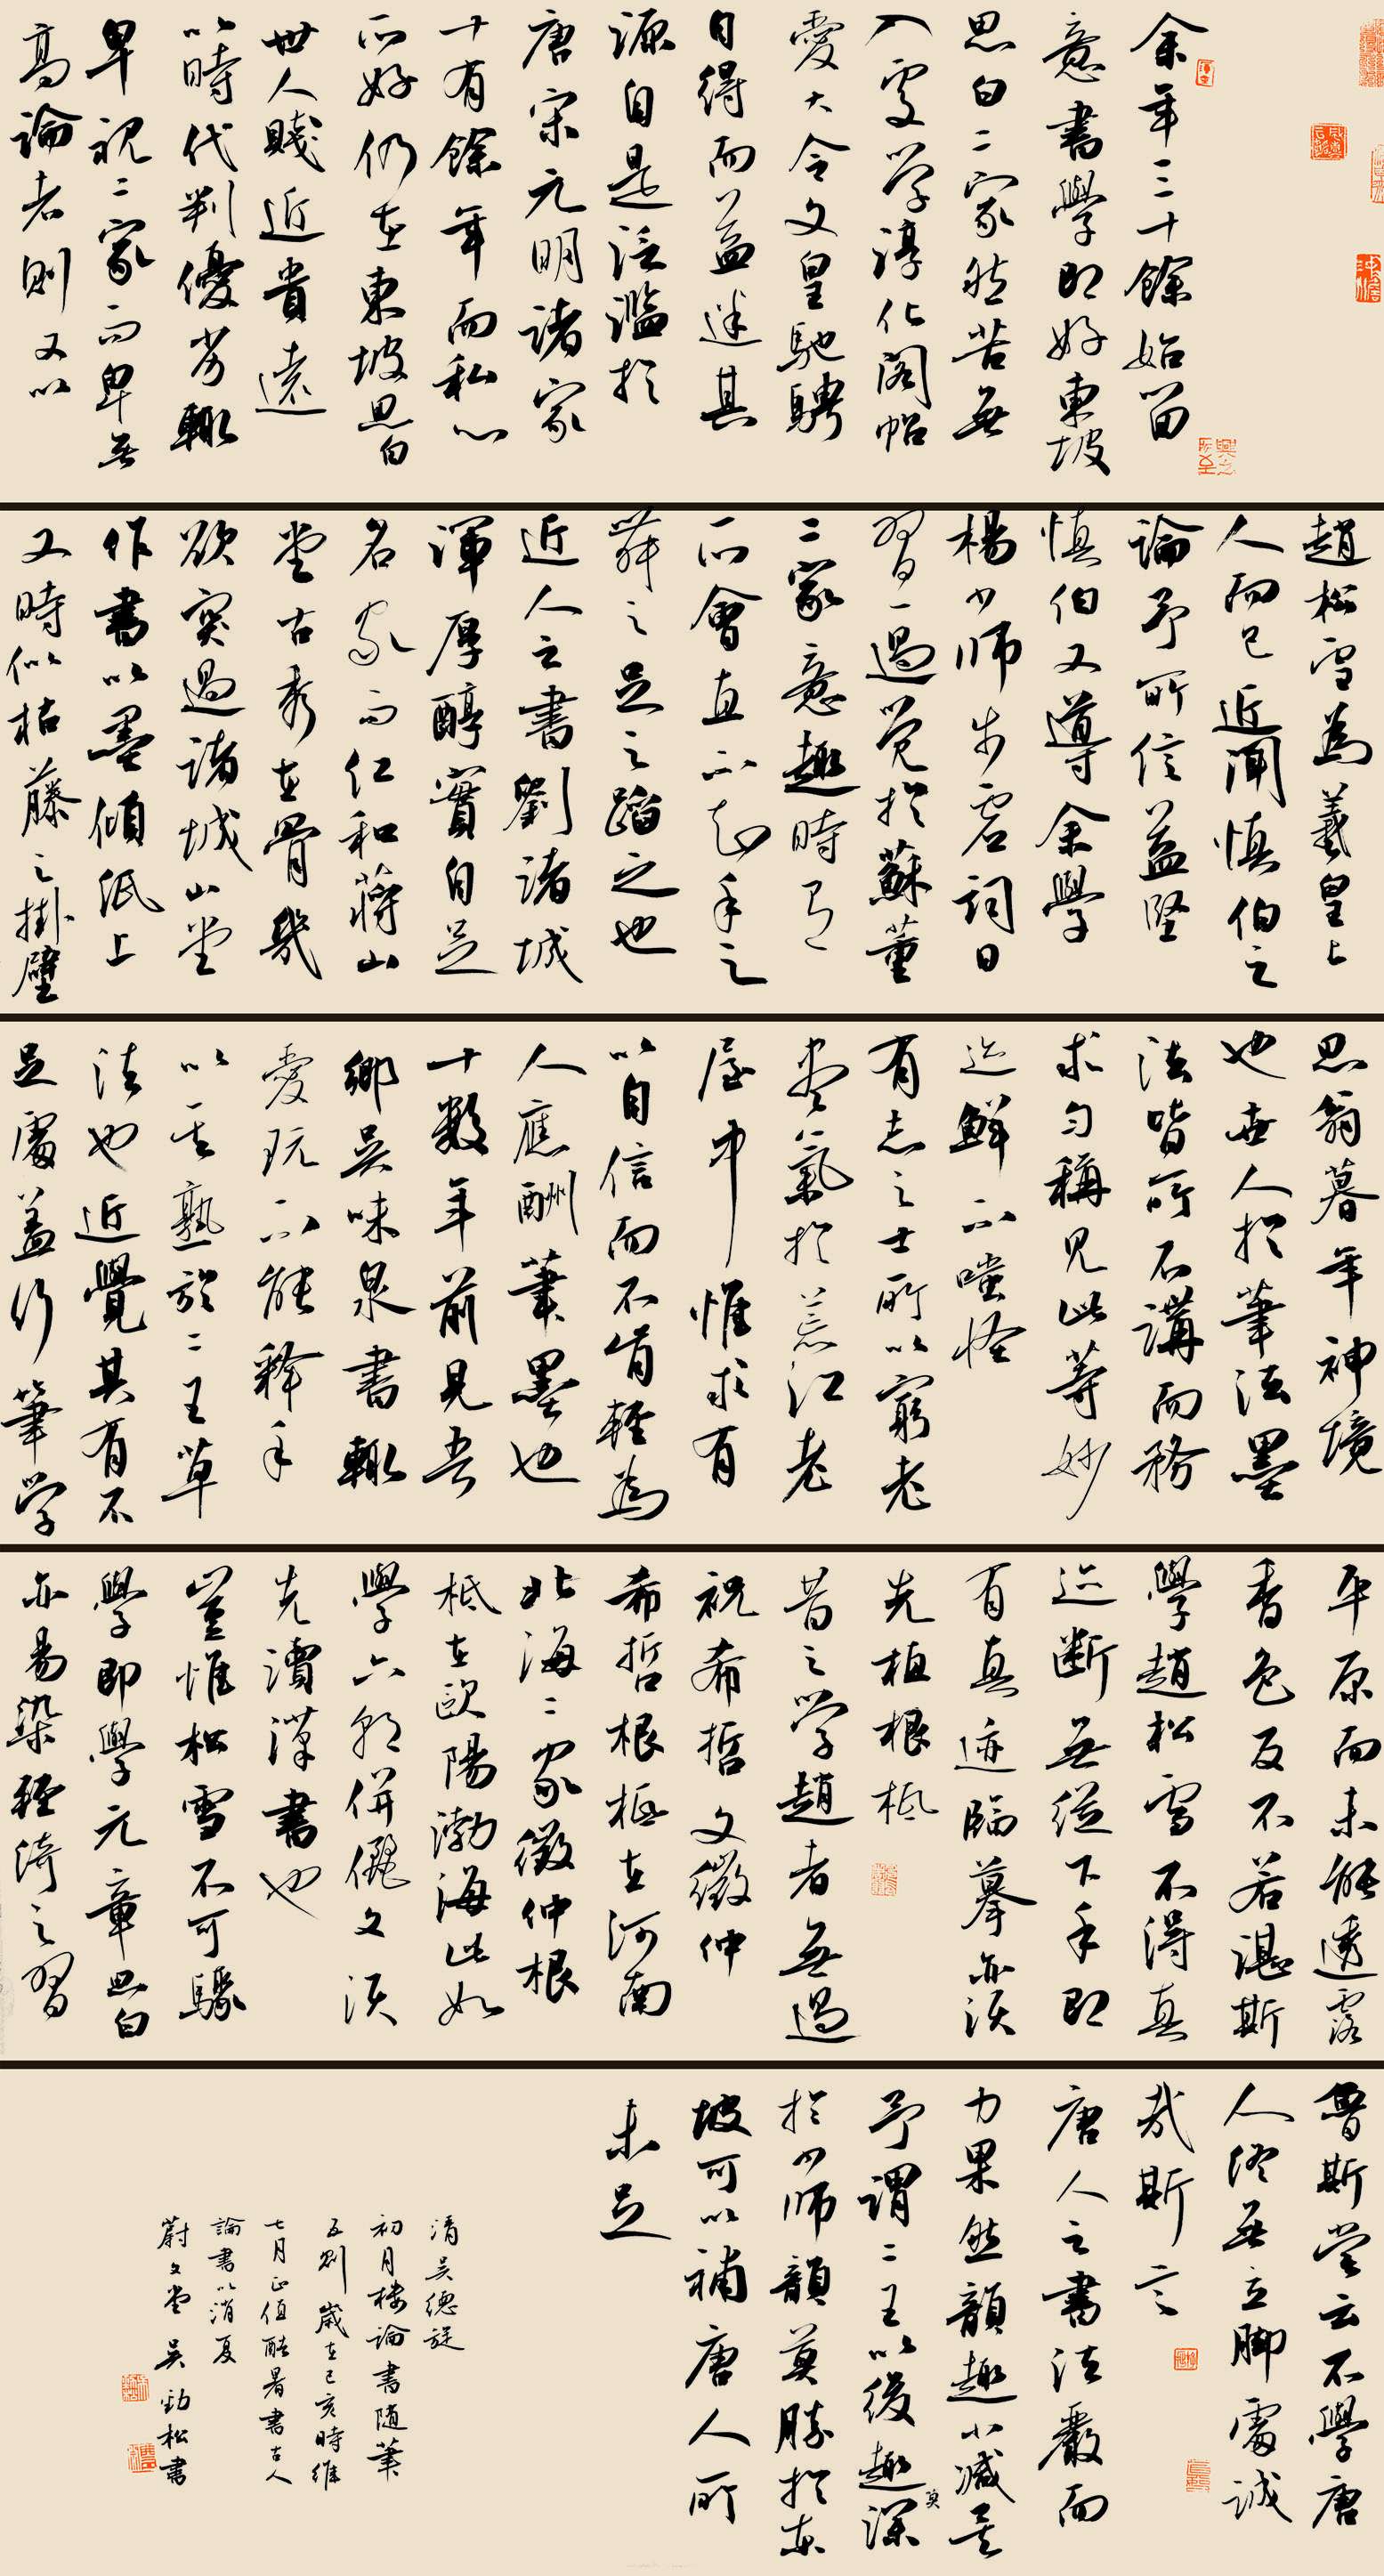 余年三十餘始留
意書學即好東坡
思白二家然苦無
入處學淳化閣帖
愛大令文皇馳騁
自得而益迷其
源自是泛濫於
唐宋元明諸家
十有餘年而私心
所好仍在東坡思白
世人賤近貴遠
以時代判優劣輒
卑視二家而卑無
高論者則又以
趙松雪為羲皇上
人而已近聞慎伯之
論予所信益堅
慎伯又導余學
楊少師步虛詞日
習一過覺於蘇董
二家意趣時有
所會直不知手之
舞之足之蹈之也
近人之書劉諸城
渾厚醇實自足
名家而仁和蔣山
堂古秀在骨幾
欲突過諸城山堂
作書以墨傾紙上
又時似枯藤之掛壁
思翁暮年神境
也世人於筆法墨
法皆所不講而務
求勻稱見此等妙
迹鮮不嗤怪
有志之士所以窮老
盡氣於荒江老
屋中惟求有
以自信而不肯輕為
人應酬筆墨也
十數年前見吾
鄉吳味泉書輒
愛玩不能釋手
以其熟於二王草
法也近覺其有不
足處蓋行筆學
平原而未能透露
香色反不若湛斯
學趙松雪不得真
迹斷無從下手即
有真迹臨摹亦須
先植根柢
昔之學趙者無過
祝希哲文徵仲
希哲根柢在河南
北海二家徵仲根
柢在歐陽渤海此如
學六朝併儷文須
先讀漢書也
豈惟松雪不可驟
學即學元章思白
亦易染輕綺之習
魯斯嘗云不學唐
人終無立腳處誠
哉斯言
唐人之書法嚴而
力果然韻趣小減矣
予謂二王以後趣深
莫
於少師韻莫勝於東
坡可以補唐人所
未足
清吳德旋
初月樓論書隨筆
五則歲在己亥時維
七月正值酷暑書古人
論書以消夏
蔚文堂吳勁松書